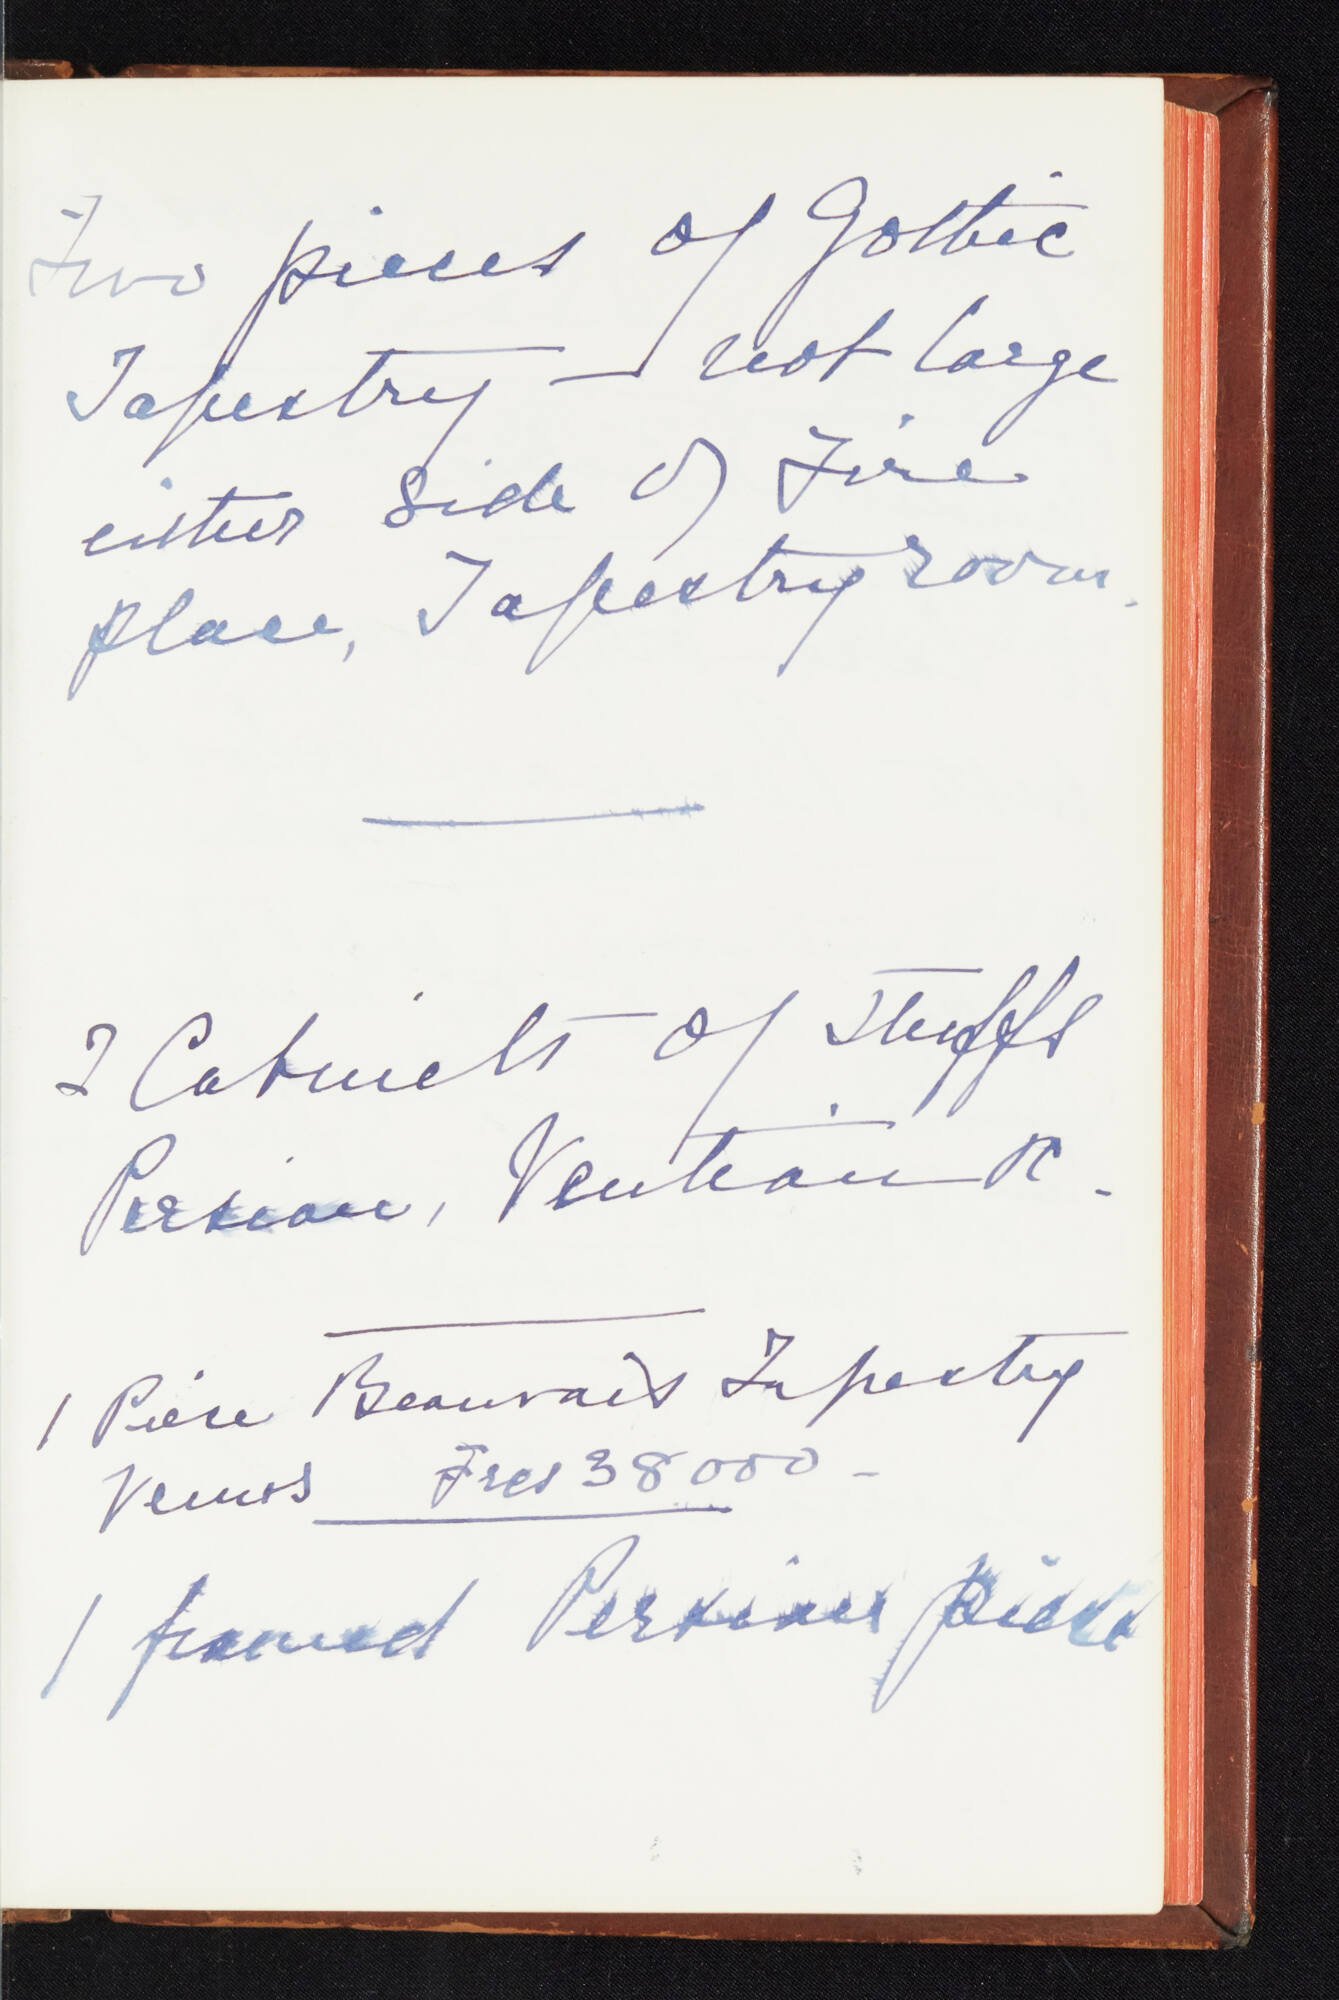 Two pieces of Gothic
Tapestry — not large
either side of Fire
place, Tapestry room.
2 Cabinets of Stuffs
Persian, Venetian &c.
1 Piece Beauvais Tapestry
Venus Frcs 38000 -
1 framed Persian piece